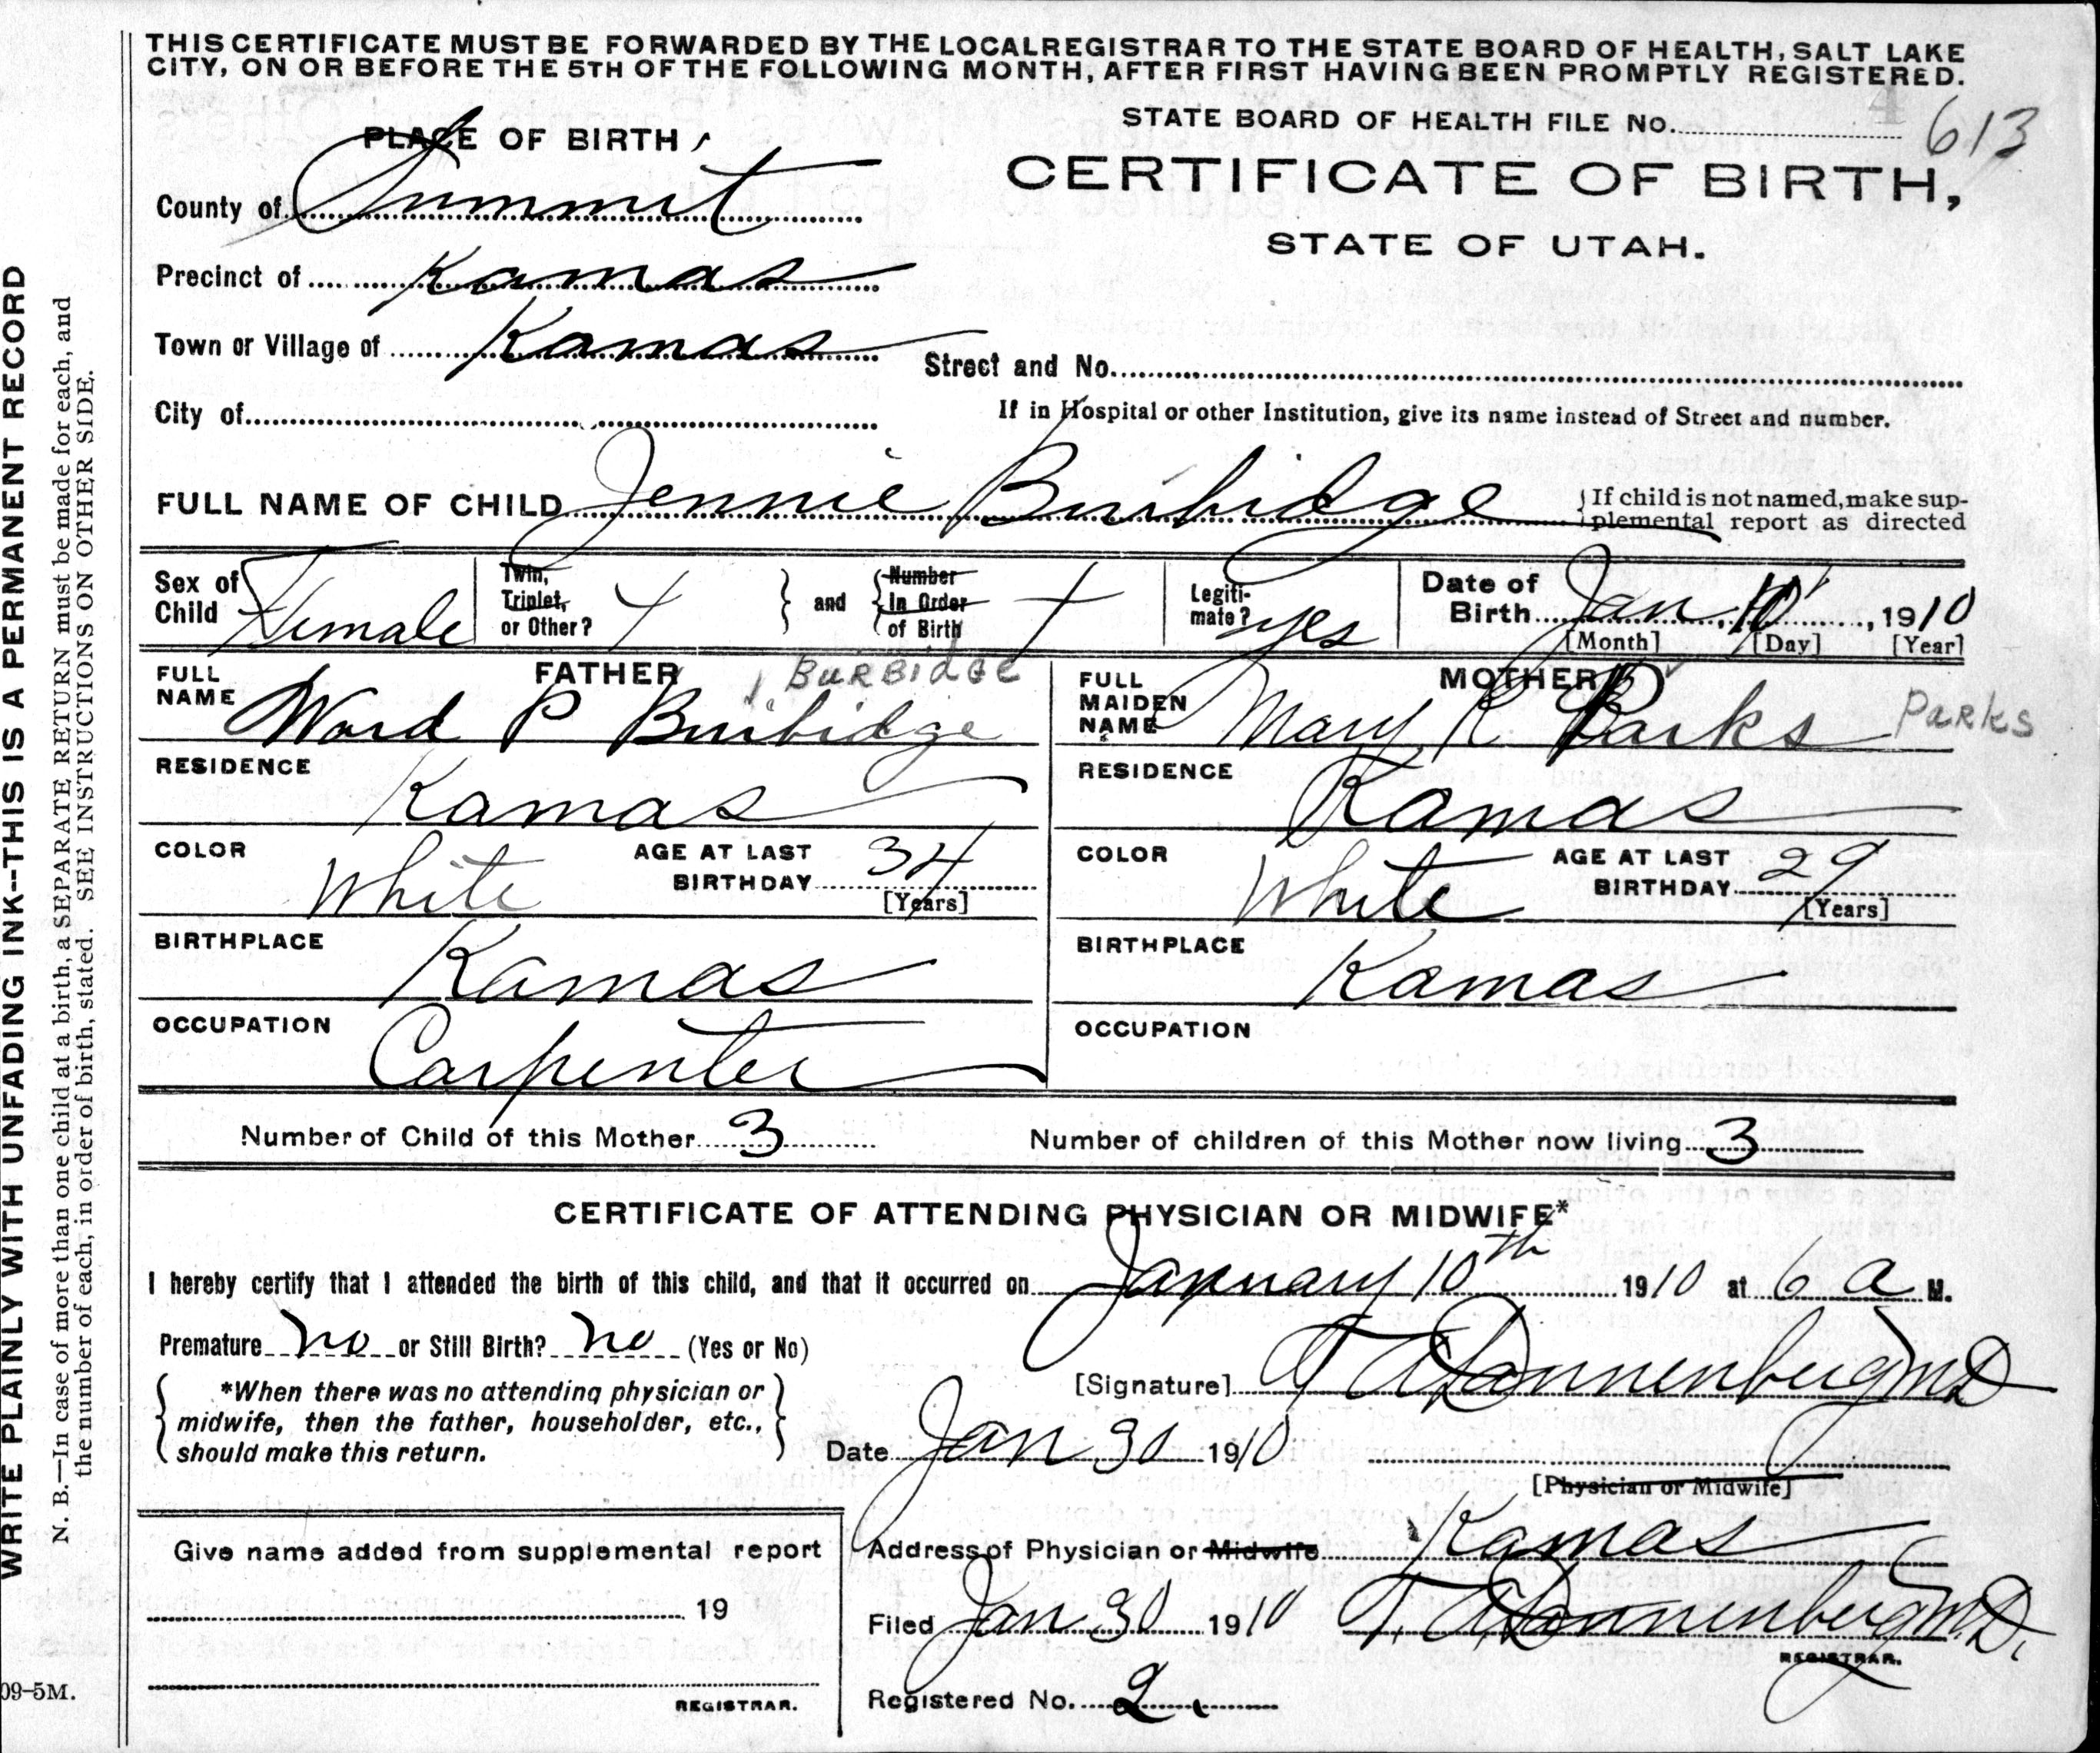 THIS CERTIFICATE MUST BE FORWARDED BY THE LOCAL REGISTRAR TO THE STATE BOARD OF HEALTH, SALT LAKE
CITY, ON OR BEFORE THE 5TH OF THE FOLLOWING MONTH, AFTER FIRST HAVING BEEN PROMPTLY REGISTERED.
PLACE OF BIRTH
STATE BOARD OF HEALTH FILE No. 613
CERTIFICATE OF BIRTH,
STATE OF UTAH.
County of Summit
Precinct of Kamas
Town or Village of Kamas
Street and No.
City of
If in Hospital or other Institution, give its name instead of Street and number.
FULL NAME OF CHILD Jennie Burbidge
If child is not named, make sup-
plemental report as directed
Sex of Child Female
Twin, Triplet, or Other?
and
Number in Order of Birth
Legiti-mate? yes
Date of Birth Jan 10, 1910
[Month] [Day] [Year]
FATHER
BURBIDGE
FULL NAME Ward P Burbidge
MOTHER
FULL MAIDEN NAME Mary R Parks
PARKS
RESIDENCE Kamas
RESIDENCE Kamas
COLOR White
AGE AT LAST BIRTHDAY 34 [Years]
COLOR White
AGE AT LAST BIRTHDAY 29 [Years]
BIRTHPLACE Kamas
BIRTHPLACE Kamas
OCCUPATION Carpenter
OCCUPATION
Number of Child of this Mother 3
Number of children of this Mother now living 3
CERTIFICATE OF ATTENDING PHYSICIAN OR MIDWIFE*
I hereby certify that I attended the birth of this child, and that it occurred on January 10th 1910 at 6 a M.
Premature no or Still Birth? no (Yes or No)
*When there was no attending physician or
midwife, then the father, householder, etc.,
should make this return.
[Signature] T A Dannenberg MD
Date Jan 30 1910
[Physician or Midwife]
Address of Physician or Midwife Kamas
Give name added from supplemental report
19
REGISTRAR.
Filed Jan 30 1910 T. A. Dannenberg M.D.
REGISTRAR.
Registered No. 2
WRITE PLAINLY WITH UNFADING INK--THIS IS A PERMANENT RECORD
N. B.—In case of more than one child at a birth, a SEPARATE RETURN must be made for each, and
the number of each, in order of birth, stated. SEE INSTRUCTIONS ON OTHER SIDE.
09-5M.